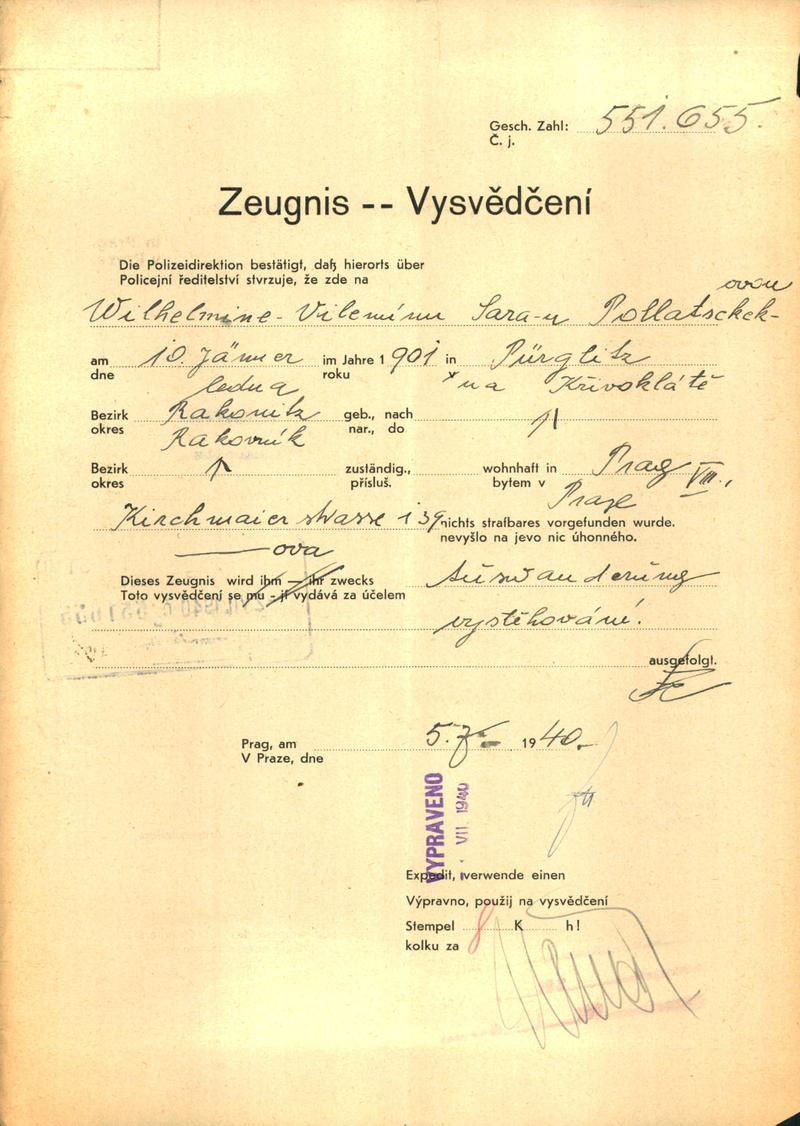 Gesch. Zahl: 551.655.
Č. j.
Zeugnis -- Vysvědčení
Die Polizeidirektion bestätigt, daß hierorts über
Policejní ředitelství stvrzuje, že zde na
ovou
Wilhelmine - Vilemínu Sara-u Pollatschek-
am 10. Jänner im Jahre 1901 in Pürglitz
dne ledna roku na Křivoklátě
Bezirk Rakonitz geb., nach
okres Rakovník nar., do
Bezirk zuständig., wohnhaft in Prag VIII.,
okres přísluš. bytem v Praze
Kirchmaier strasse 139 nichts strafbares vorgefunden wurde.
ova nevyšlo na jevo nic úhonného.
Dieses Zeugnis wird ihm — ihr zwecks Auswanderung
Toto vysvědčení se mu - jí vydává za účelem
vystěhování.
ausgefolgt.
Prag, am 5. 1940.
V Praze, dne
VYPRAVENO
VII. 1940
Expedit, verwende einen
Výpravno, použij na vysvědčení
Stempel 8 K h!
kolku za